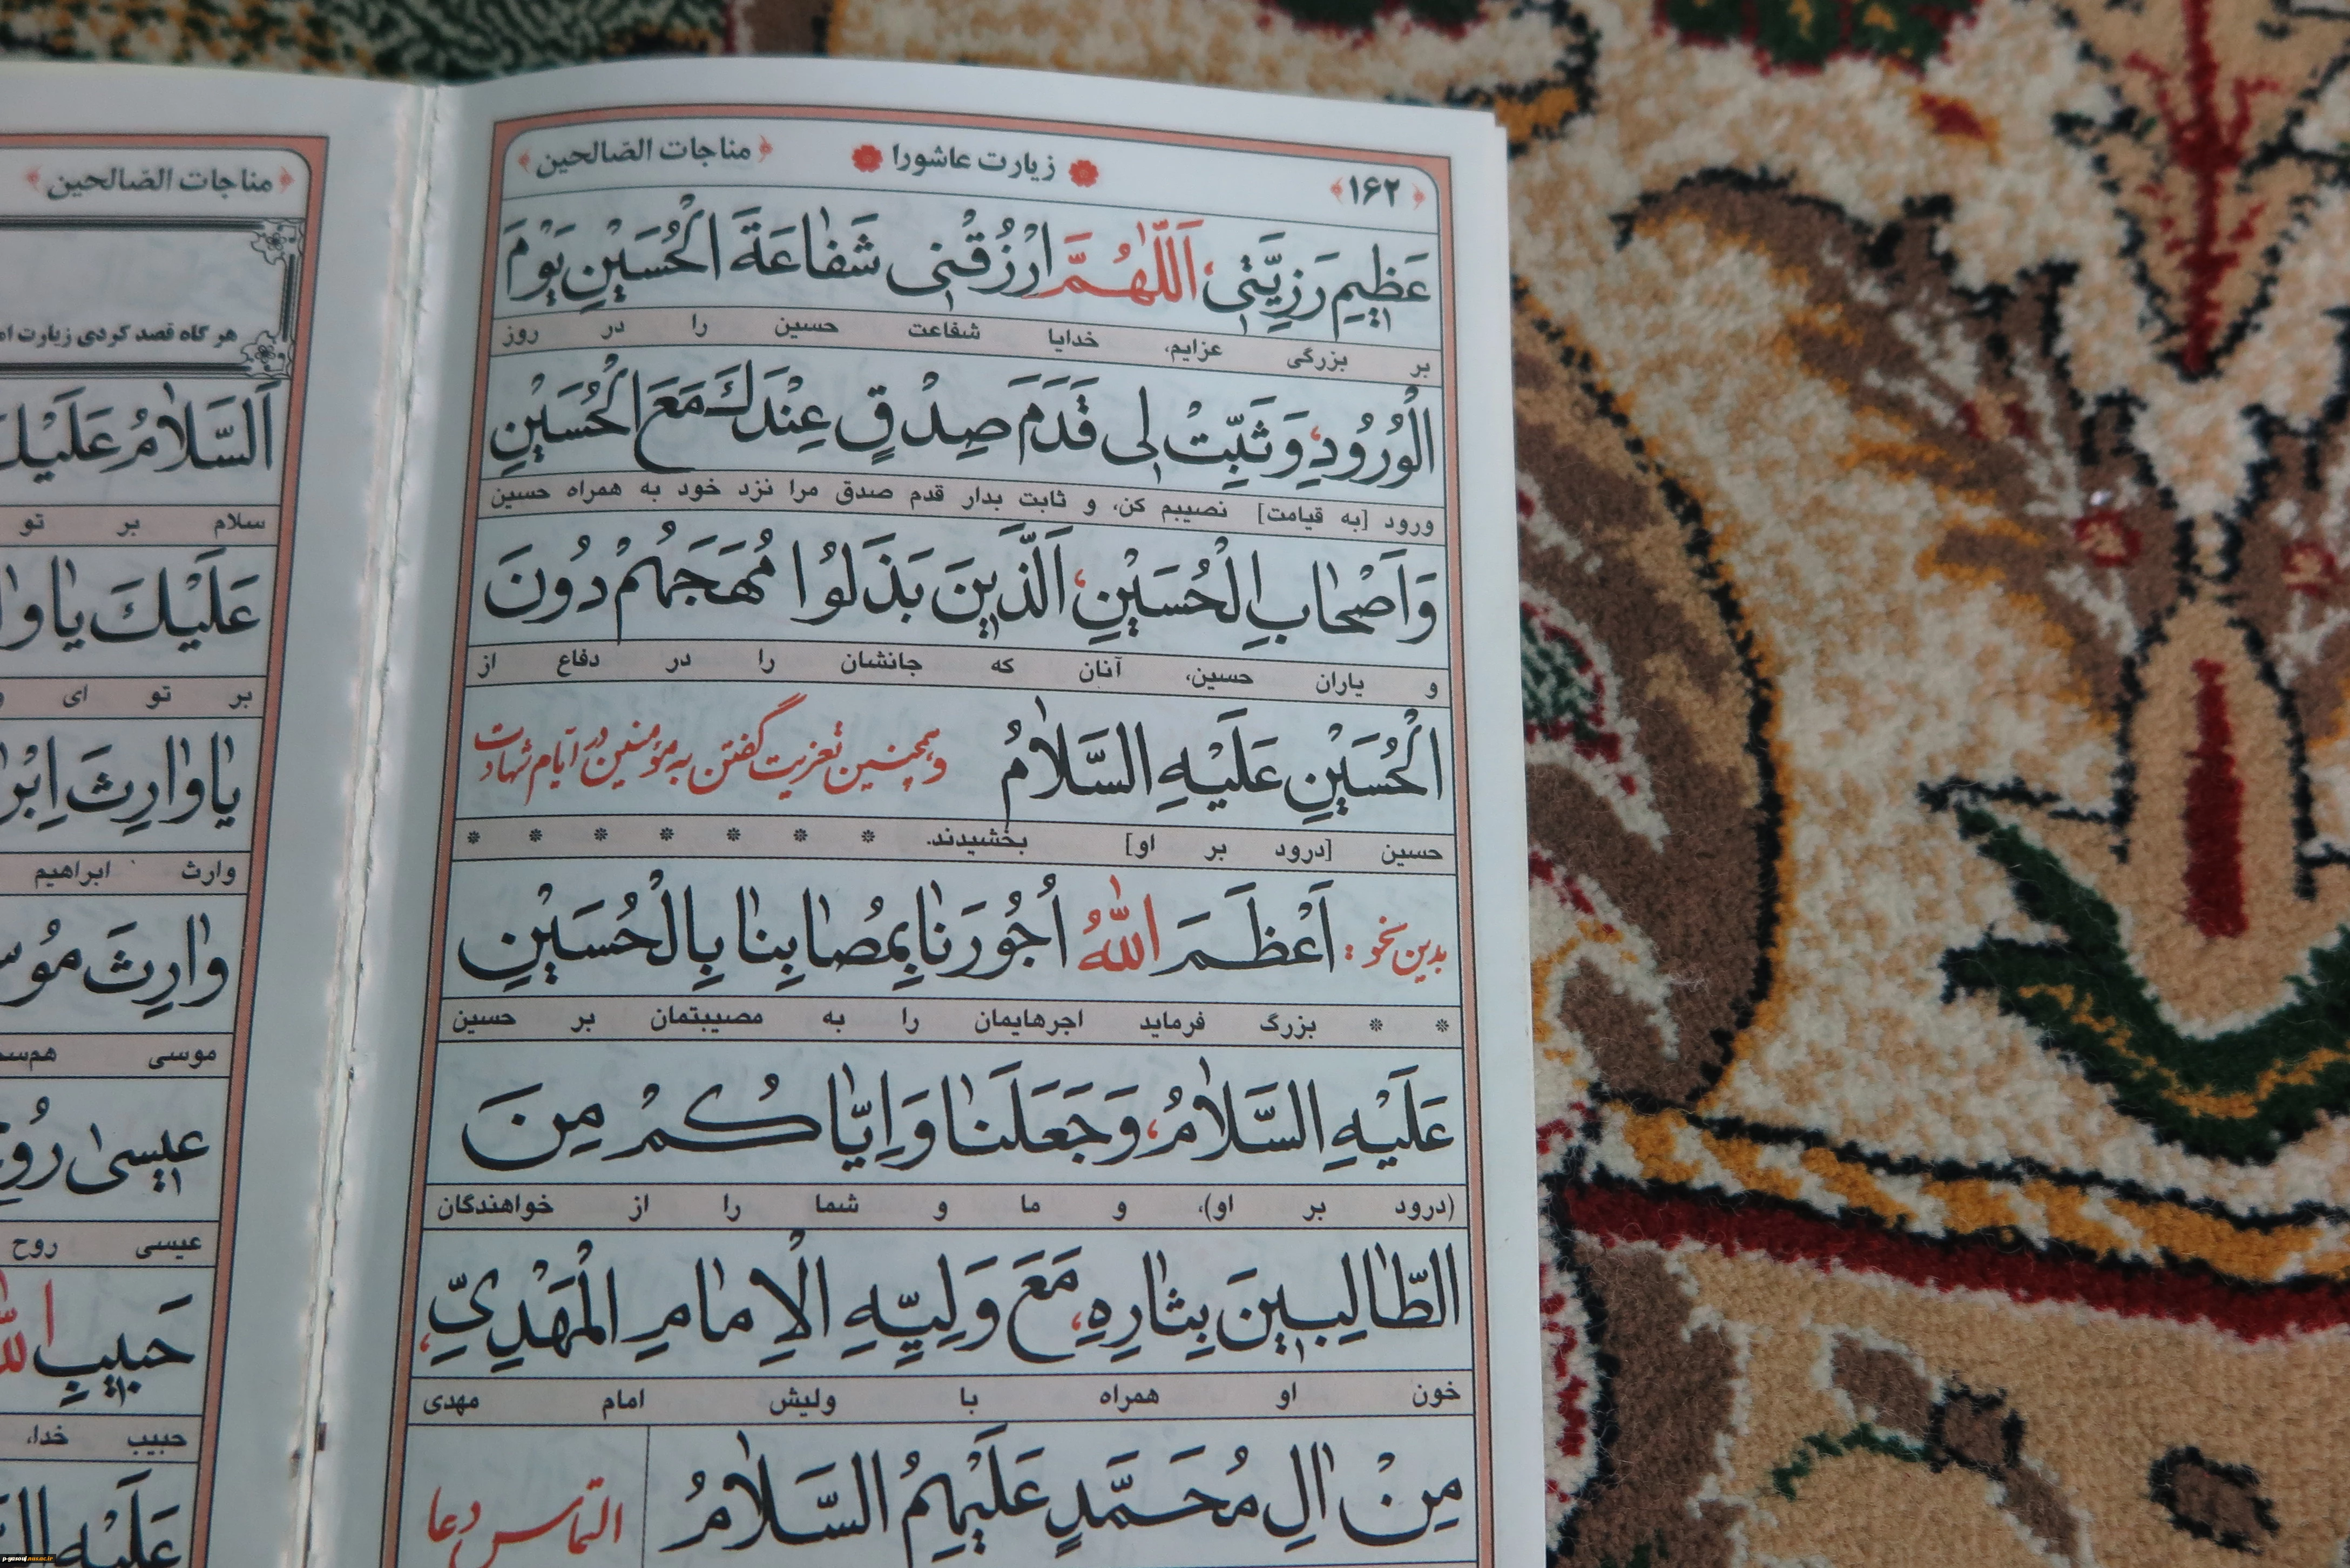 ﴿۱۶۲﴾ زیارت عاشورا ﴿مناجات الصّالحین﴾
عَظیمِ رَزِیَّتی، اَللّٰهُمَّ ارْزُقْنی شَفٰاعَةَ الْحُسَیْنِ یَوْمَ
بر بزرگی عزایم، خدایا شفاعت حسین را در روز
الْوُرُودِ، وَ ثَبِّتْ لی قَدَمَ صِدْقٍ عِنْدَكَ مَعَ الْحُسَیْنِ
ورود [به قیامت] نصیبم کن، و ثابت بدار قدم صدق مرا نزد خود به همراه حسین
وَ اَصْحٰابِ الْحُسَیْنِ، اَلَّذینَ بَذَلُوا مُهَجَهُمْ دُونَ
و یاران حسین، آنان که جانشان را در دفاع از
الْحُسَیْنِ عَلَیْهِ السَّلٰامُ وهمچنین تعزیت گفتن به مؤمنین در ایّام شهادت
حسین [درود بر او] بخشیدند. * * * * * * *
بدین نحو: اَعْظَمَ اللّٰهُ اُجُورَنٰا بِمُصٰابِنٰا بِالْحُسَیْنِ
* * بزرگ فرماید اجرهایمان را به مصیبتمان بر حسین
عَلَیْهِ السَّلٰامُ، وَ جَعَلَنٰا وَ اِیّٰاکُمْ مِنَ
(درود بر او)، و ما و شما را از خواهندگان
الطّٰالِبینَ بِثٰارِهِ، مَعَ وَلِیِّهِ الْاِمٰامِ الْمَهْدِیِّ،
خون او همراه با ولیش امام مهدی
مِنْ اٰلِ مُحَمَّدٍ عَلَیْهِمُ السَّلٰامُ التماس دعا
﴿مناجات الصّالحین﴾
هر گاه قصد کردی زیارت
اَلسَّلٰامُ عَلَیْكَ
سلام بر تو
عَلَیْكَ یٰا
بر تو ای
یٰا وٰارِثَ
وارث ابراهیم
وٰارِثَ
موسی
عیسیٰ
عیسی روح
حَبیبِ
حبیب خدا،
عَلَیْهِ